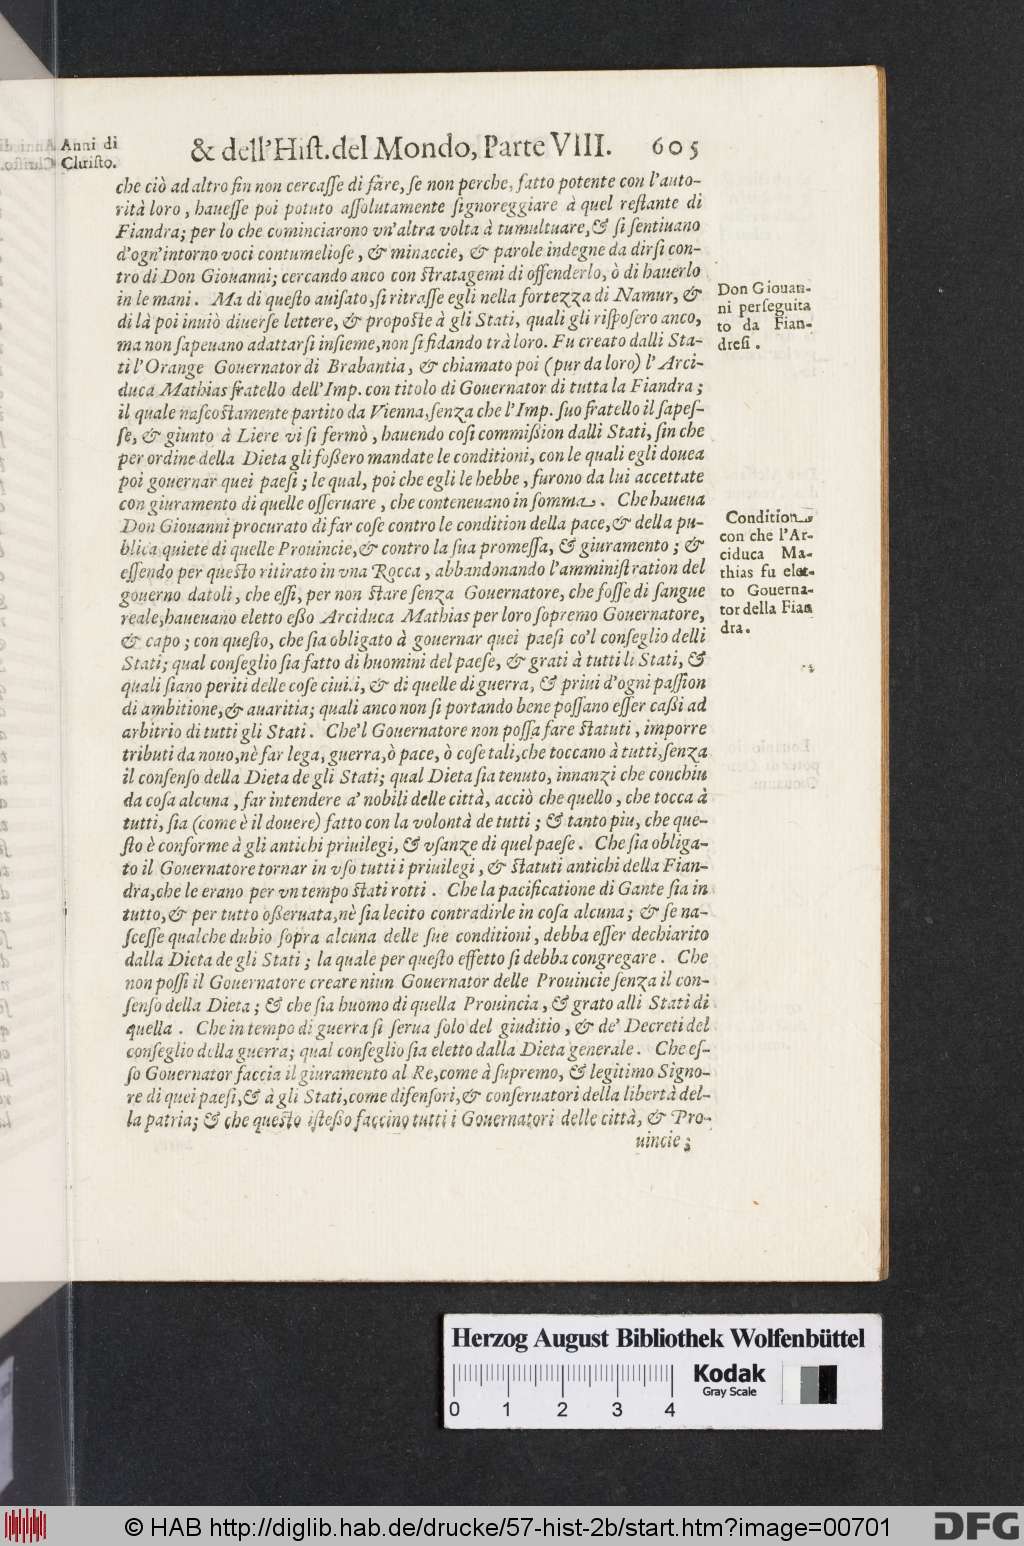 Anni di
Christo.
& dell'Hist. del Mondo, Parte VIII. 605
che ciò ad altro fin non cercasse di fare, se non perche, fatto potente con l'auto-
rità loro, hauesse poi potuto assolutamente signoreggiare à quel restante di
Fiandra; per lo che cominciarono vn'altra volta à tumultuare, & si sentiuano
d'ogn'intorno voci contumeliose, & minaccie, & parole indegne da dirsi con-
tro di Don Giouanni; cercando anco con stratagemi di offenderlo, ò di hauerlo
in le mani. Ma di questo auisato, si ritrasse egli nella fortezza di Namur, &
di là poi inuiò diuerse lettere, & proposte à gli Stati, quali gli risposero anco,
ma non sapeuano adattarsi insieme, non si fidando trà loro. Fu creato dalli Sta-
ti l'Orange Gouernator di Brabantia, & chiamato poi (pur da loro) l'Arci-
duca Mathias fratello dell'Imp. con titolo di Gouernator di tutta la Fiandra;
il quale nascostamente partito da Vienna, senza che l'Imp. suo fratello il sapes-
se, & giunto à Liere vi si fermò, hauendo cosi commißion dalli Stati, sin che
per ordine della Dieta gli foßero mandate le conditioni, con le quali egli douea
poi gouernar quei paesi; le qual, poi che egli le hebbe, furono da lui accettate
con giuramento di quelle osseruare, che conteneuano in somma. Che haueua
Don Giouanni procurato di far cose contro le condition della pace, & della pu-
blica quiete di quelle Prouincie, & contro la sua promessa, & giuramento; &
essendo per questo ritirato in vna Rocca, abbandonando l'amministration del
gouerno datoli, che essi, per non stare senza Gouernatore, che fosse di sangue
reale, haueuano eletto eßo Arciduca Mathias per loro sopremo Gouernatore,
& capo; con questo, che sia obligato à gouernar quei paesi co'l conseglio delli
Stati; qual conseglio sia fatto di huomini del paese, & grati à tutti li Stati, &
quali siano periti delle cose ciui.i, & di quelle di guerra, & priui d'ogni passion
di ambitione, & auaritia; quali anco non si portando bene possano esser caßi ad
arbitrio di tutti gli Stati. Che'l Gouernatore non possa fare statuti, imporre
tributi da nouo, nè far lega, guerra, ò pace, ò cose tali, che toccano à tutti, senza
il consenso della Dieta de gli Stati; qual Dieta sia tenuto, innanzi che conchiu
da cosa alcuna, far intendere a' nobili delle città, acciò che quello, che tocca à
tutti, sia (come è il douere) fatto con la volontà de tutti; & tanto piu, che que-
sto è conforme à gli antichi priuilegi, & vsanze di quel paese. Che sia obliga-
to il Gouernatore tornar in vso tutti i priuilegi, & statuti antichi della Fian-
dra, che le erano per vn tempo stati rotti. Che la pacificatione di Gante sia in
tutto, & per tutto oßeruata, nè sia lecito contradirle in cosa alcuna; & se na-
scesse qualche dubio sopra alcuna delle sue conditioni, debba esser dechiarito
dalla Dieta de gli Stati; la quale per questo effetto si debba congregare. Che
non possi il Gouernatore creare niun Gouernator delle Prouincie senza il con-
senso della Dieta; & che sia huomo di quella Prouincia, & grato alli Stati di
quella. Che in tempo di guerra si serua solo del giuditio, & de' Decreti del
conseglio della guerra; qual conseglio sia eletto dalla Dieta generale. Che es-
so Gouernator faccia il giuramento al Re, come à supremo, & legitimo Signo-
re di quei paesi, & à gli Stati, come difensori, & conseruatori della libertà del-
la patria; & che questo isteßo faccino tutti i Gouernatori delle città, & Pro-
uincie;
Don Giouan-
ni perseguita
to da Fian-
dresi.
Condition
con che l'Ar-
ciduca Ma-
thias fu elet-
to Gouerna-
tor della Fian
dra.
Herzog August Bibliothek Wolfenbüttel
0 1 2 3 4
Kodak
Gray Scale
© HAB http://diglib.hab.de/drucke/57-hist-2b/start.htm?image=00701
DFG